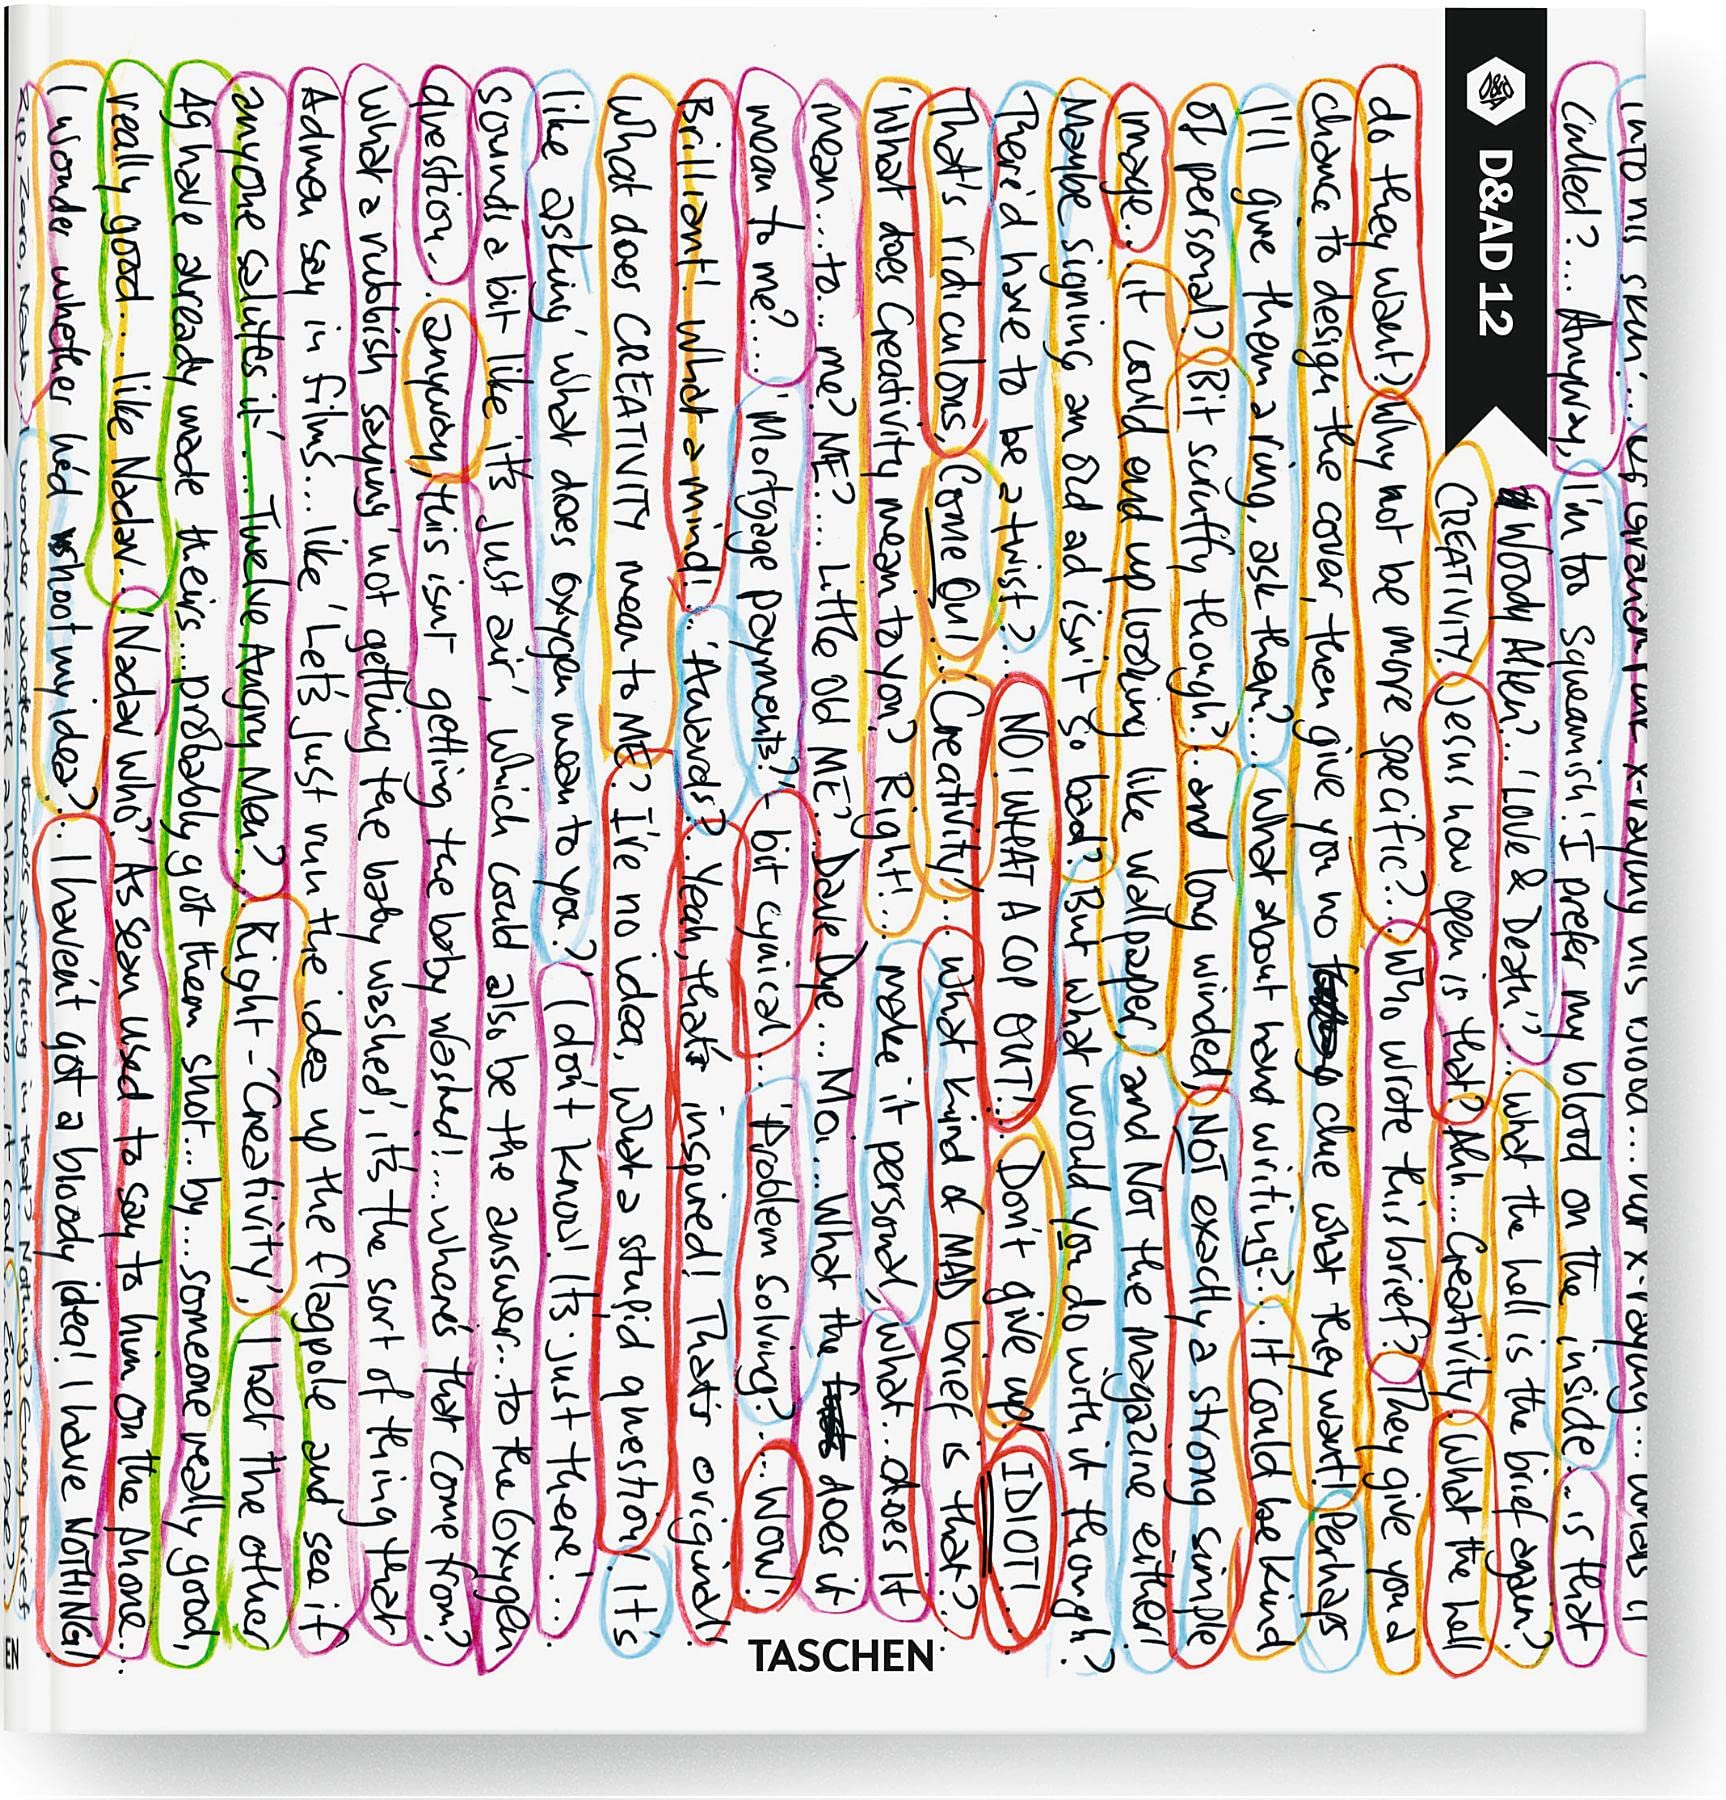 D&AD
D&AD 12
his skin'....
Called?... Anyway, I'm too squeamish! I prefer my blood on the inside... is that
Woody Allen?... 'Love & Death'?... What the hell is the brief again?
CREATIVITY. Jesus how open is that? Ahh... Creativity. What the hell
do they want? Why not be more specific?... Who wrote this brief? They give you a
chance to design the cover, then give you no clue what they want! Perhaps
I'll give them a ring, ask them?... What about hand writing?.. It could be kind
of personal? Bit scruffy though?.. and long winded, NOT exactly a strong simple
image.. it could end up looking like wallpaper, and NOT the magazine either!
Maybe signing an old ad isn't so bad? But what would you do with it though?
There'd have to be a twist?... NO! WHAT A COP OUT!... Don't give up! IDIOT!...
That's ridiculous, Come On!... 'Creativity'... what kind of MAD brief is that?...
'What does Creativity mean to you? Right!... make it personal, 'what... does it
mean... to... me? ME?.... Little old ME?... Dave Dye.... Moi.... What the does it
mean to me?.... 'Mortgage payments?' - bit cynical.... 'Problem Solving?'.... WOW!
Brilliant! What a mind!.. 'Awards?'.. Yeah, that's inspired! That's original!
What does CREATIVITY mean to ME? I've no idea, what a stupid question! It's
like asking 'what does oxygen mean to you?' I don't know! It's just there!...
sounds a bit like 'it's just air', which could also be the answer... to the Oxygen
question.. anyway, this isn't getting the baby washed!.... where's that come from?
What a rubbish saying 'not getting the baby washed', it's the sort of thing that
Admen say in films.... like 'Let's just run the idea up the flagpole and see if
anyone salutes it'... Twelve Angry Men?... Right - 'Creativity', I bet the other
AG have already made theirs... probably got them shot... by.... someone really good,
really good.... like Nadav... 'Nadav Who?' As Sean used to say to him on the phone...
I wonder whether he'd shoot my idea?... I haven't got a bloody idea! I have NOTHING!
Zip, Zero, Nada... I wonder whether theres anything in that? Nothing? Every brief
starts with a blank page...
TASCHEN
EN